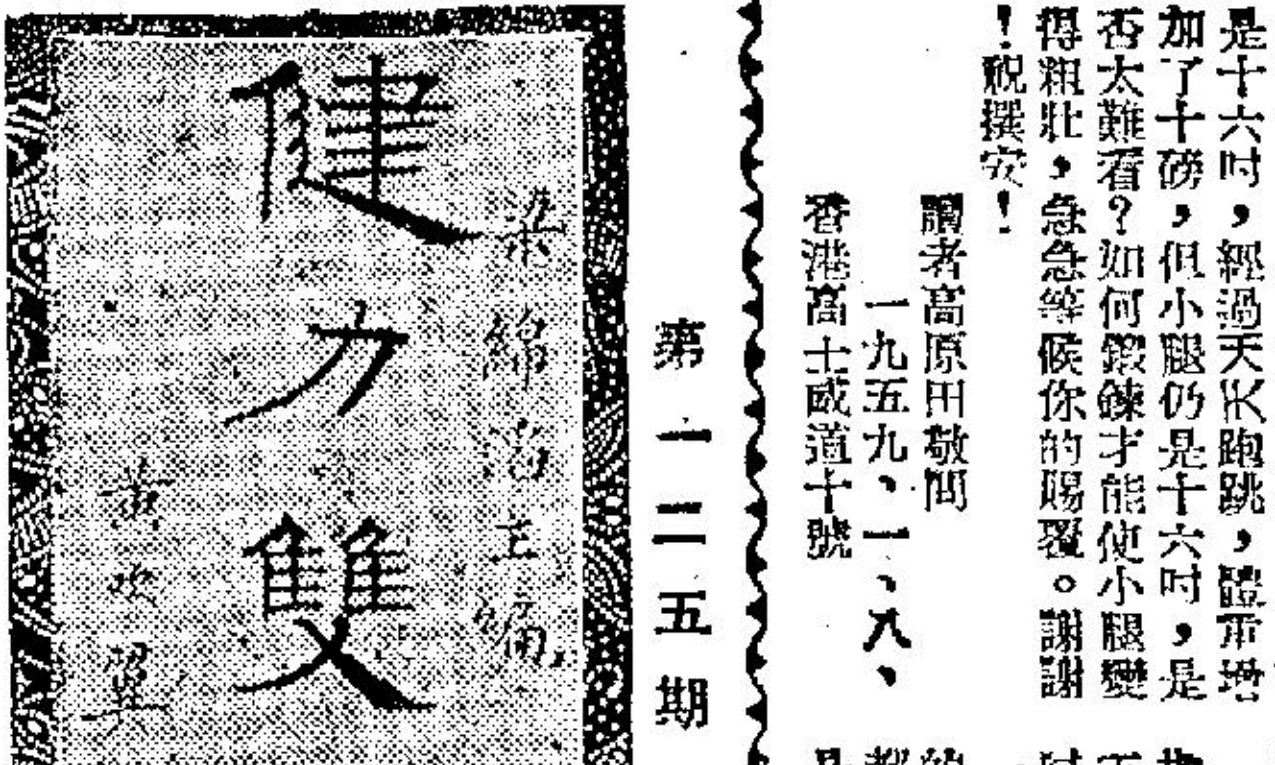 是十六吋，經過天天跑跳，體重增
加了十磅，但小腿仍是十六吋，是
否太難看？如何鍛鍊才能使小腿變
得粗壯，急急等候你的賜覆。謝謝
！祝撰安！
讀者高原田敬問
一九五九、一、八、
香港高士威道十號
第一二五期
梁錦滔主編
健力雙
黃吹翼